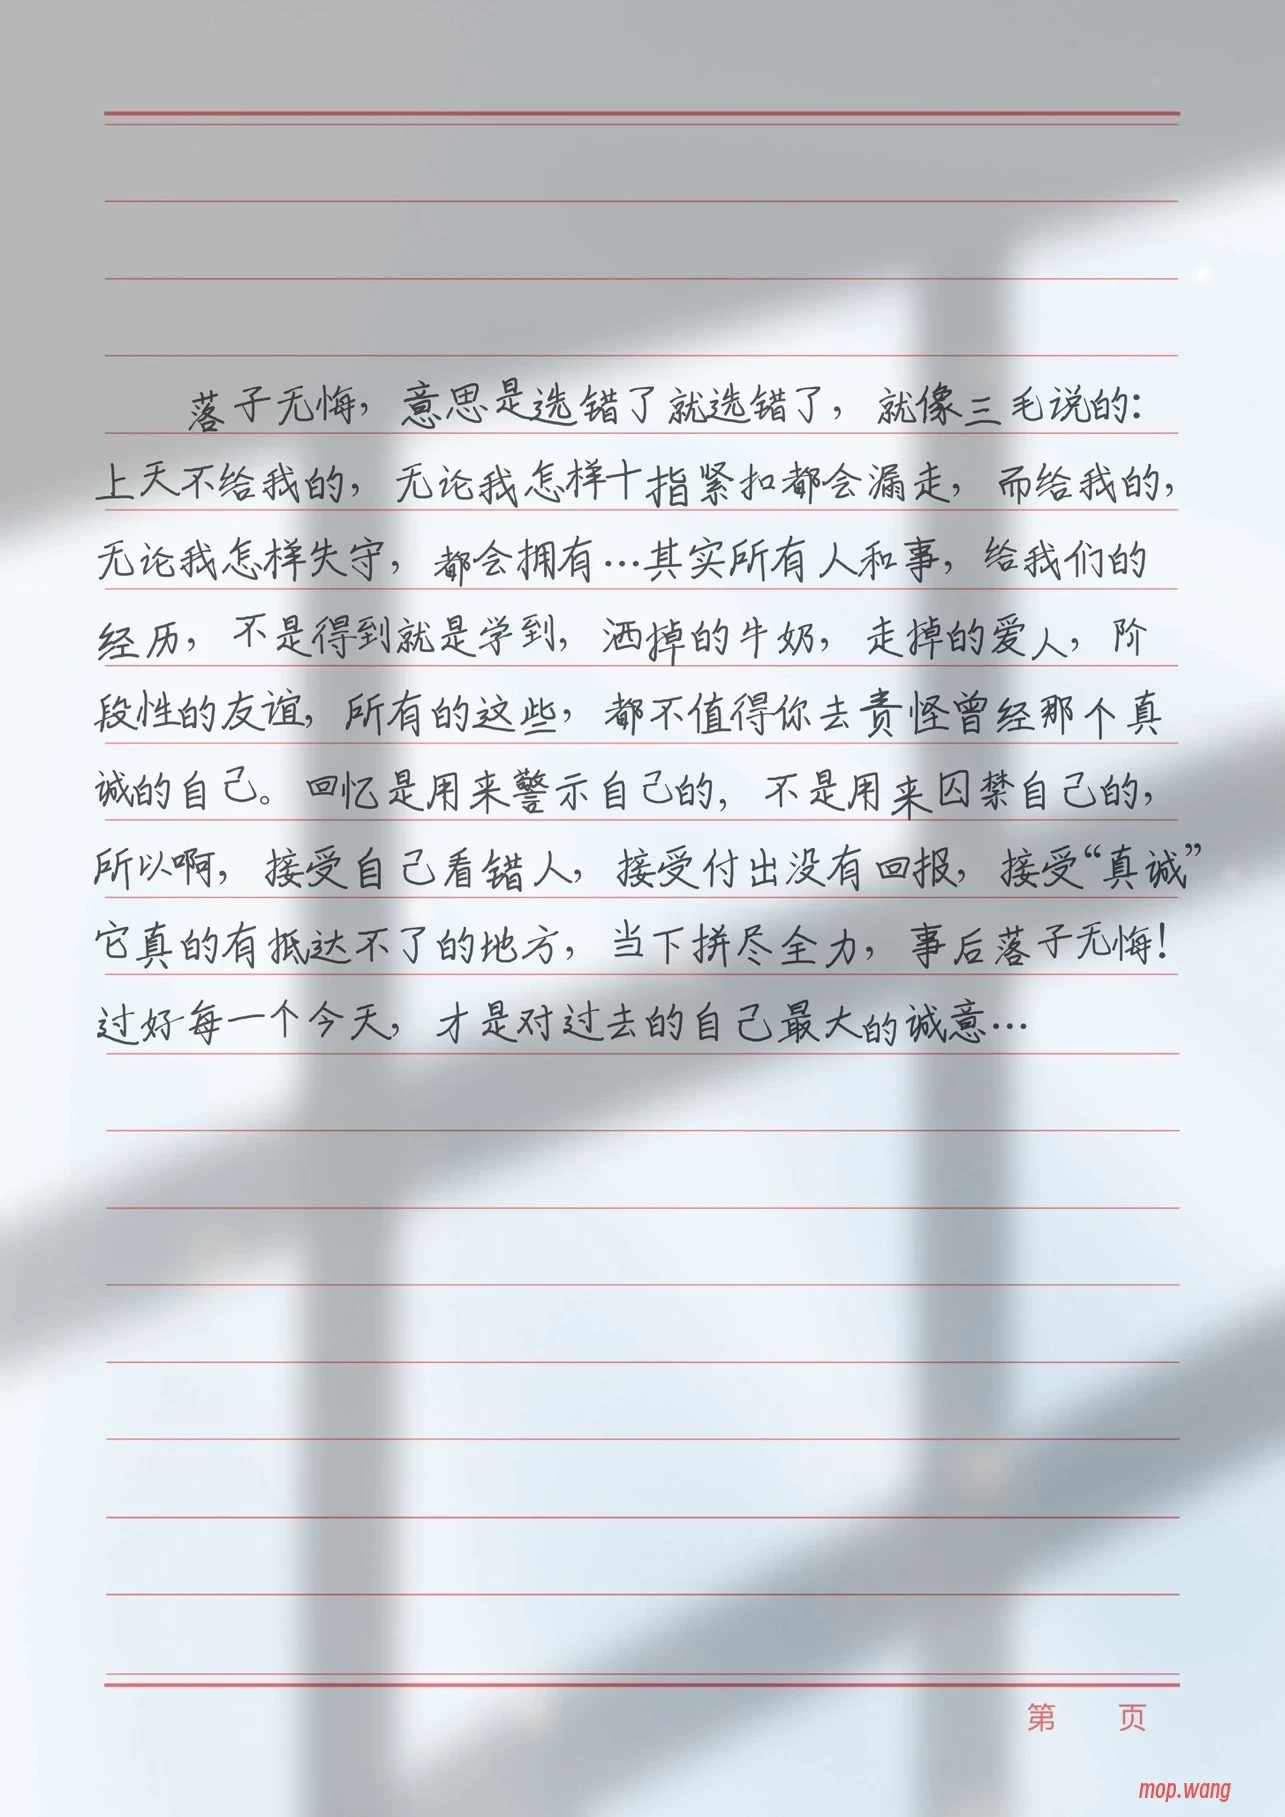 落子无悔，意思是选错了就选错了，就像三毛说的：
上天不给我的，无论我怎样十指紧扣都会漏走，而给我的，
无论我怎样失守，都会拥有…其实所有人和事，给我们的
经历，不是得到就是学到，洒掉的牛奶，走掉的爱人，阶
段性的友谊，所有的这些，都不值得你去责怪曾经那个真
诚的自己。回忆是用来警示自己的，不是用来囚禁自己的，
所以啊，接受自己看错人，接受付出没有回报，接受“真诚”
它真的有抵达不了的地方，当下拼尽全力，事后落子无悔！
过好每一个今天，才是对过去的自己最大的诚意…
第 页
mop.wang